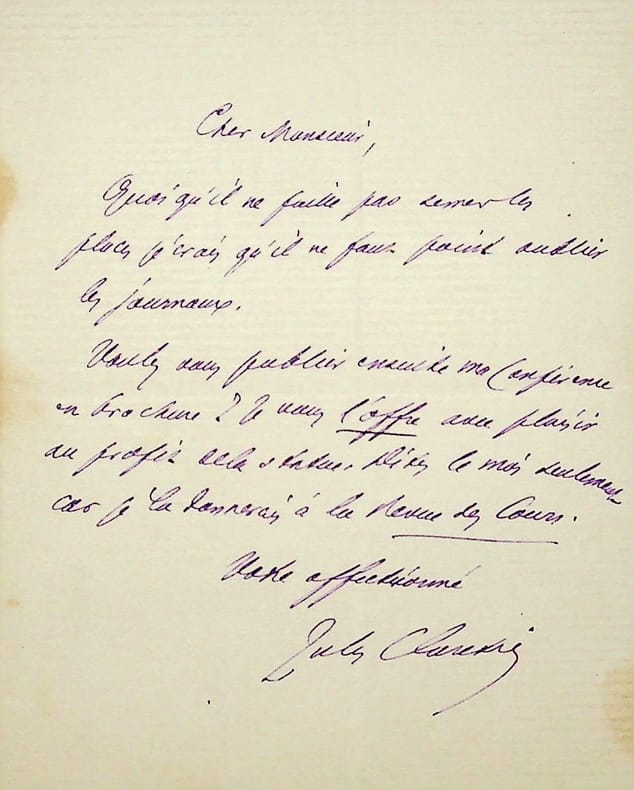 Cher Monsieur,
Quoiqu'il ne faille pas semer les
places je crois qu'il ne faut point oublier
les journaux.
Voulez vous publier ensuite ma Conférence
en brochure ? Je vous l'offre avec plaisir
au profit de la statue. Dites le moi seulement
car je la donnerais à la Revue des Cours.
Votre affectionné
Jules Claretie